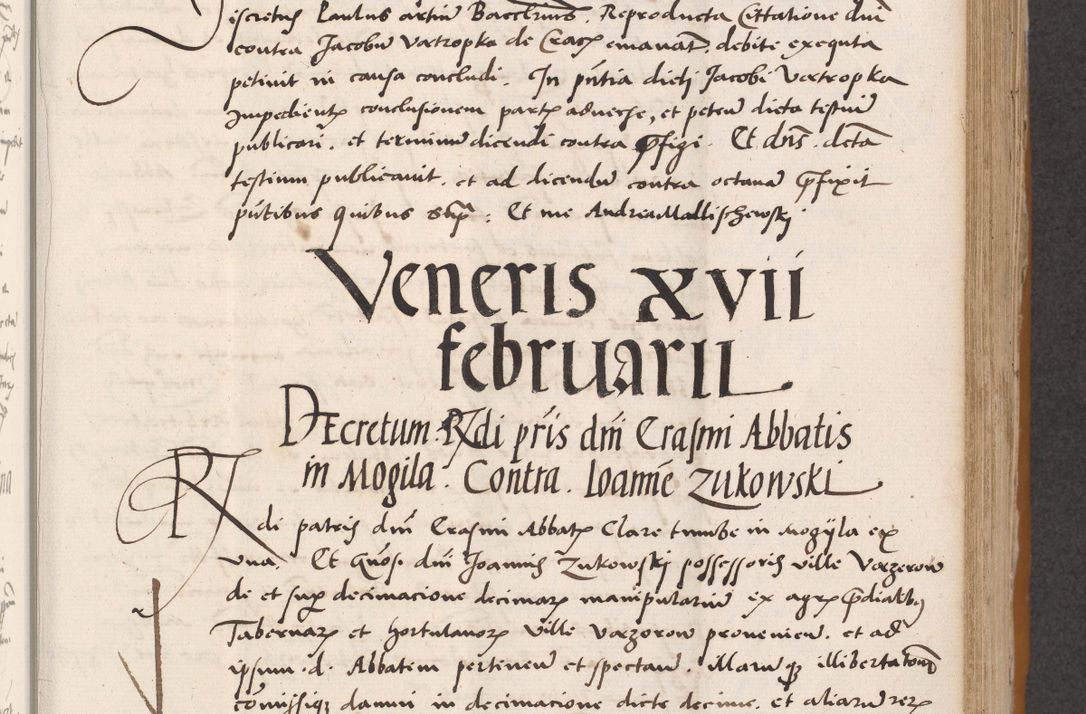 iscretus Paulus artiu Baccl̃rius. Reproducta Cittatione dni
contra Jacobu Vxtropka de Crac emanat debite exequta
petiuit in causa concludi. In pñtia dicti Jacobi Vxtropka
Impedient conclusionem part aduerse, et peteñ dicta testiũ
publicari. et terminũ dicendi contra p̃figi. Et dns. dcta
testium publicauit. et ad dicendũ contra octauã p̃fixit
pñtibus quibus sup̃. Et me Andrea Mallischewskj
Veneris XVII
februarii.
DEcretum Rdi pr̃is dni Erasmi Abbatis
in Mogila. Contra. Ioannẽ Zukowski
Rdi patris dni Erasmi Abbat Clare tumbe in Mogÿla ex
vna. Et Gnõs. dni Joannis Zukowskj possessoris ville Vxzerow
de et sup decimacione decimar manipulariũ ex agr p̃dialib
Tabernar et hortulanor ville Vxzorow prouenieñ. et ad
ipsum .d. Abbatem pertineñ et spectañ. illarũ q illibertatom
comissiq damni in decimacione dicte decime. et aliarũ rer